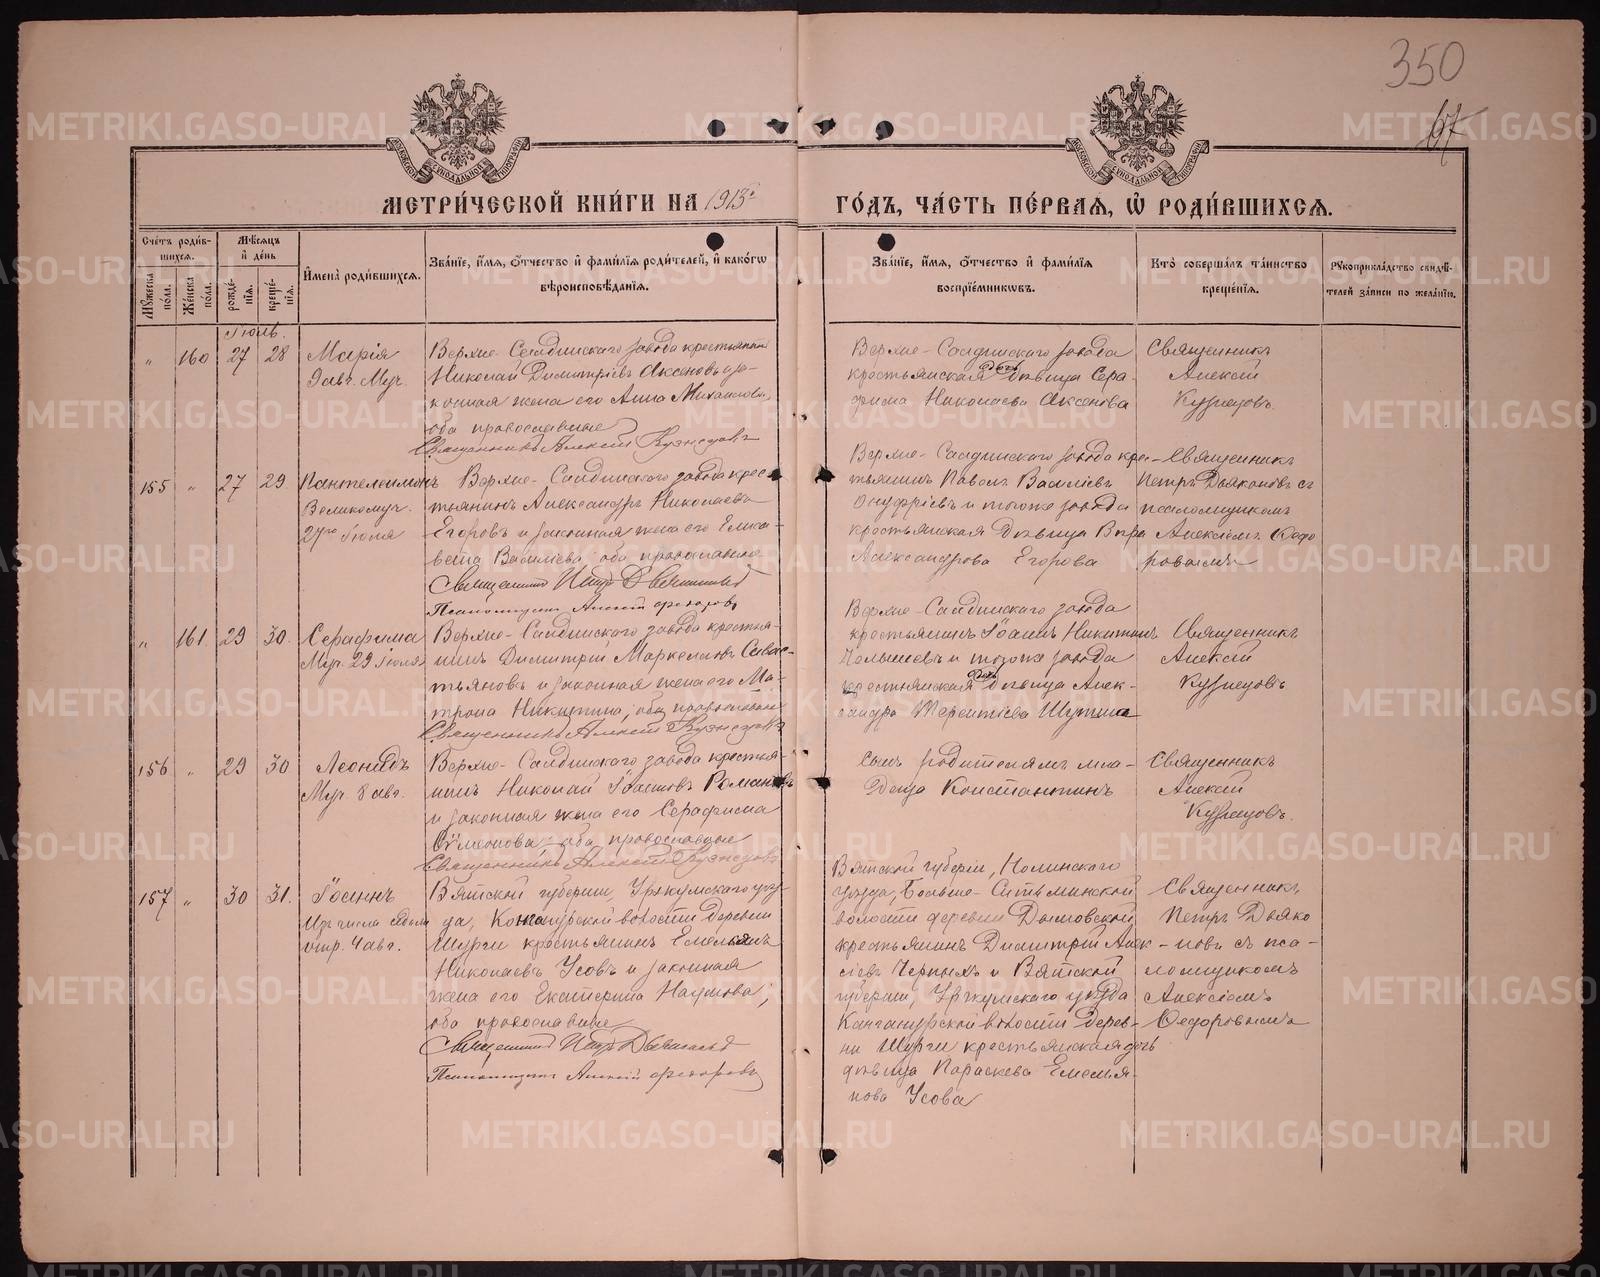 350
67
МЕТРИ́ЧЕСКОЙ КНИ́ГИ НА 1913й ГО́ДЪ, ЧА́СТЬ ПЕ́РВАЯ, Ѡ РОДИ́ВШИХСЯ.
Сче́тъ роди́в-
шихся.
Мꙋ́жеска по́ла.
Же́нска по́ла.
Мѣ́сяцъ и де́нь
рожде́-
нїя.
креще́-
нїя.
И҆мена̀ роди́вшихся.
Зва́нїе, и҆́мя, ѻ҆́тчество и҆ фами́лїя роди́телей, и҆ како́гѡ
вѣроисповѣ́данїя.
Зва́нїе, и҆́мя, ѻ҆́тчество и҆ фами́лїя
воспрїе́мникѡвъ.
Кто̀ соверша́лъ та́инство
креще́нїя.
Рꙋкоприкла́дство свидѣ́-
телей за́писи по жела́нїю.
Іюль.
" 160 27 28
Марія
9 авг. Муч.
Верхне-Салдинскаго завода крестьянинъ
Николай Димитріевъ Аксеновъ и за-
конная жена его Анна Михаилова,
оба православные
Священникъ Алексій Кузнецовъ
Верхне-Салдинскаго завода
крестьянская дочь дѣвица Сера-
фима Николаева Аксенова
Священникъ
Алексій
Кузнецовъ.
155 " 27 29
Пантелеимонъ
Великомуч.
27го Іюля
Верхне-Салдинскаго завода крес-
тьянинъ Александръ Николаевъ
Егоровъ и законная жена его Елиса-
вета Васильева, оба православные
Священникъ Петръ Дьяконовъ
Псаломщикъ Алексій Федоровъ
Верхне-Салдинскаго завода крес-
тьянинъ Павелъ Васильевъ
Онуфріевъ и тогоже завода
крестьянская дѣвица Вѣра
Александрова Егорова
Священникъ
Петръ Дьяконовъ съ
псаломщикомъ
Алексіемъ Ѳедо
ровымъ
" 161. 29 30.
Серафима
Муч. 29 Іюля
Верхне-Салдинскаго завода крестья-
нинъ Димитрій Маркеловъ Севас-
тьяновъ и законная жена его Ма-
трона Никитина, оба православные
Священникъ Алексій Кузнецовъ
Верхне-Салдинскаго завода
крестьянинъ Іоаннъ Никитинъ
и тогоже завода
крестьянская дочь дѣвица Алек-
сандра Терентіева
Священникъ
Алексій
Кузнецовъ
156 " 29 30
Леонидъ
Муч. 8 авг.
Верхне-Салдинскаго завода крестья-
нинъ Николай Іоанновъ Романовъ
и законная жена его Серафима
Сѵмеонова, оба православные
Священникъ Алексій Кузнецовъ
сынъ родителямъ мла-
деца Константинъ
Священникъ
Алексій
Кузнецовъ.
157 " 30 31.
Іоаннъ
Изъ числа седми
отр. 4 авг.
Вятской губерніи, Уржумскаго уѣз-
да, волости деревни
Шурги крестьянинъ Емельянъ
Николаевъ Усовъ и законная
жена его Екатерина Наумова,
оба православные
Священникъ Петръ Дьяконовъ
Псаломщикъ Алексій Федоровъ
Вятской губерніи, Нолинскаго
уѣзда, Больше-Ситьминской
волости деревни Дымовской
крестьянинъ Димитрій Алек-
сіевъ Черныхъ и Вятской
губерніи, Уржумскаго уѣзда
волости дерев-
ни Шурги крестьянская дочь
дѣвица Параскева Емелья-
нова Усова
Священникъ
Петръ Дьяко
новъ съ пса-
ломщикомъ
Алексіемъ
Ѳедоровымъ
METRIKI.GASO-URAL.RU